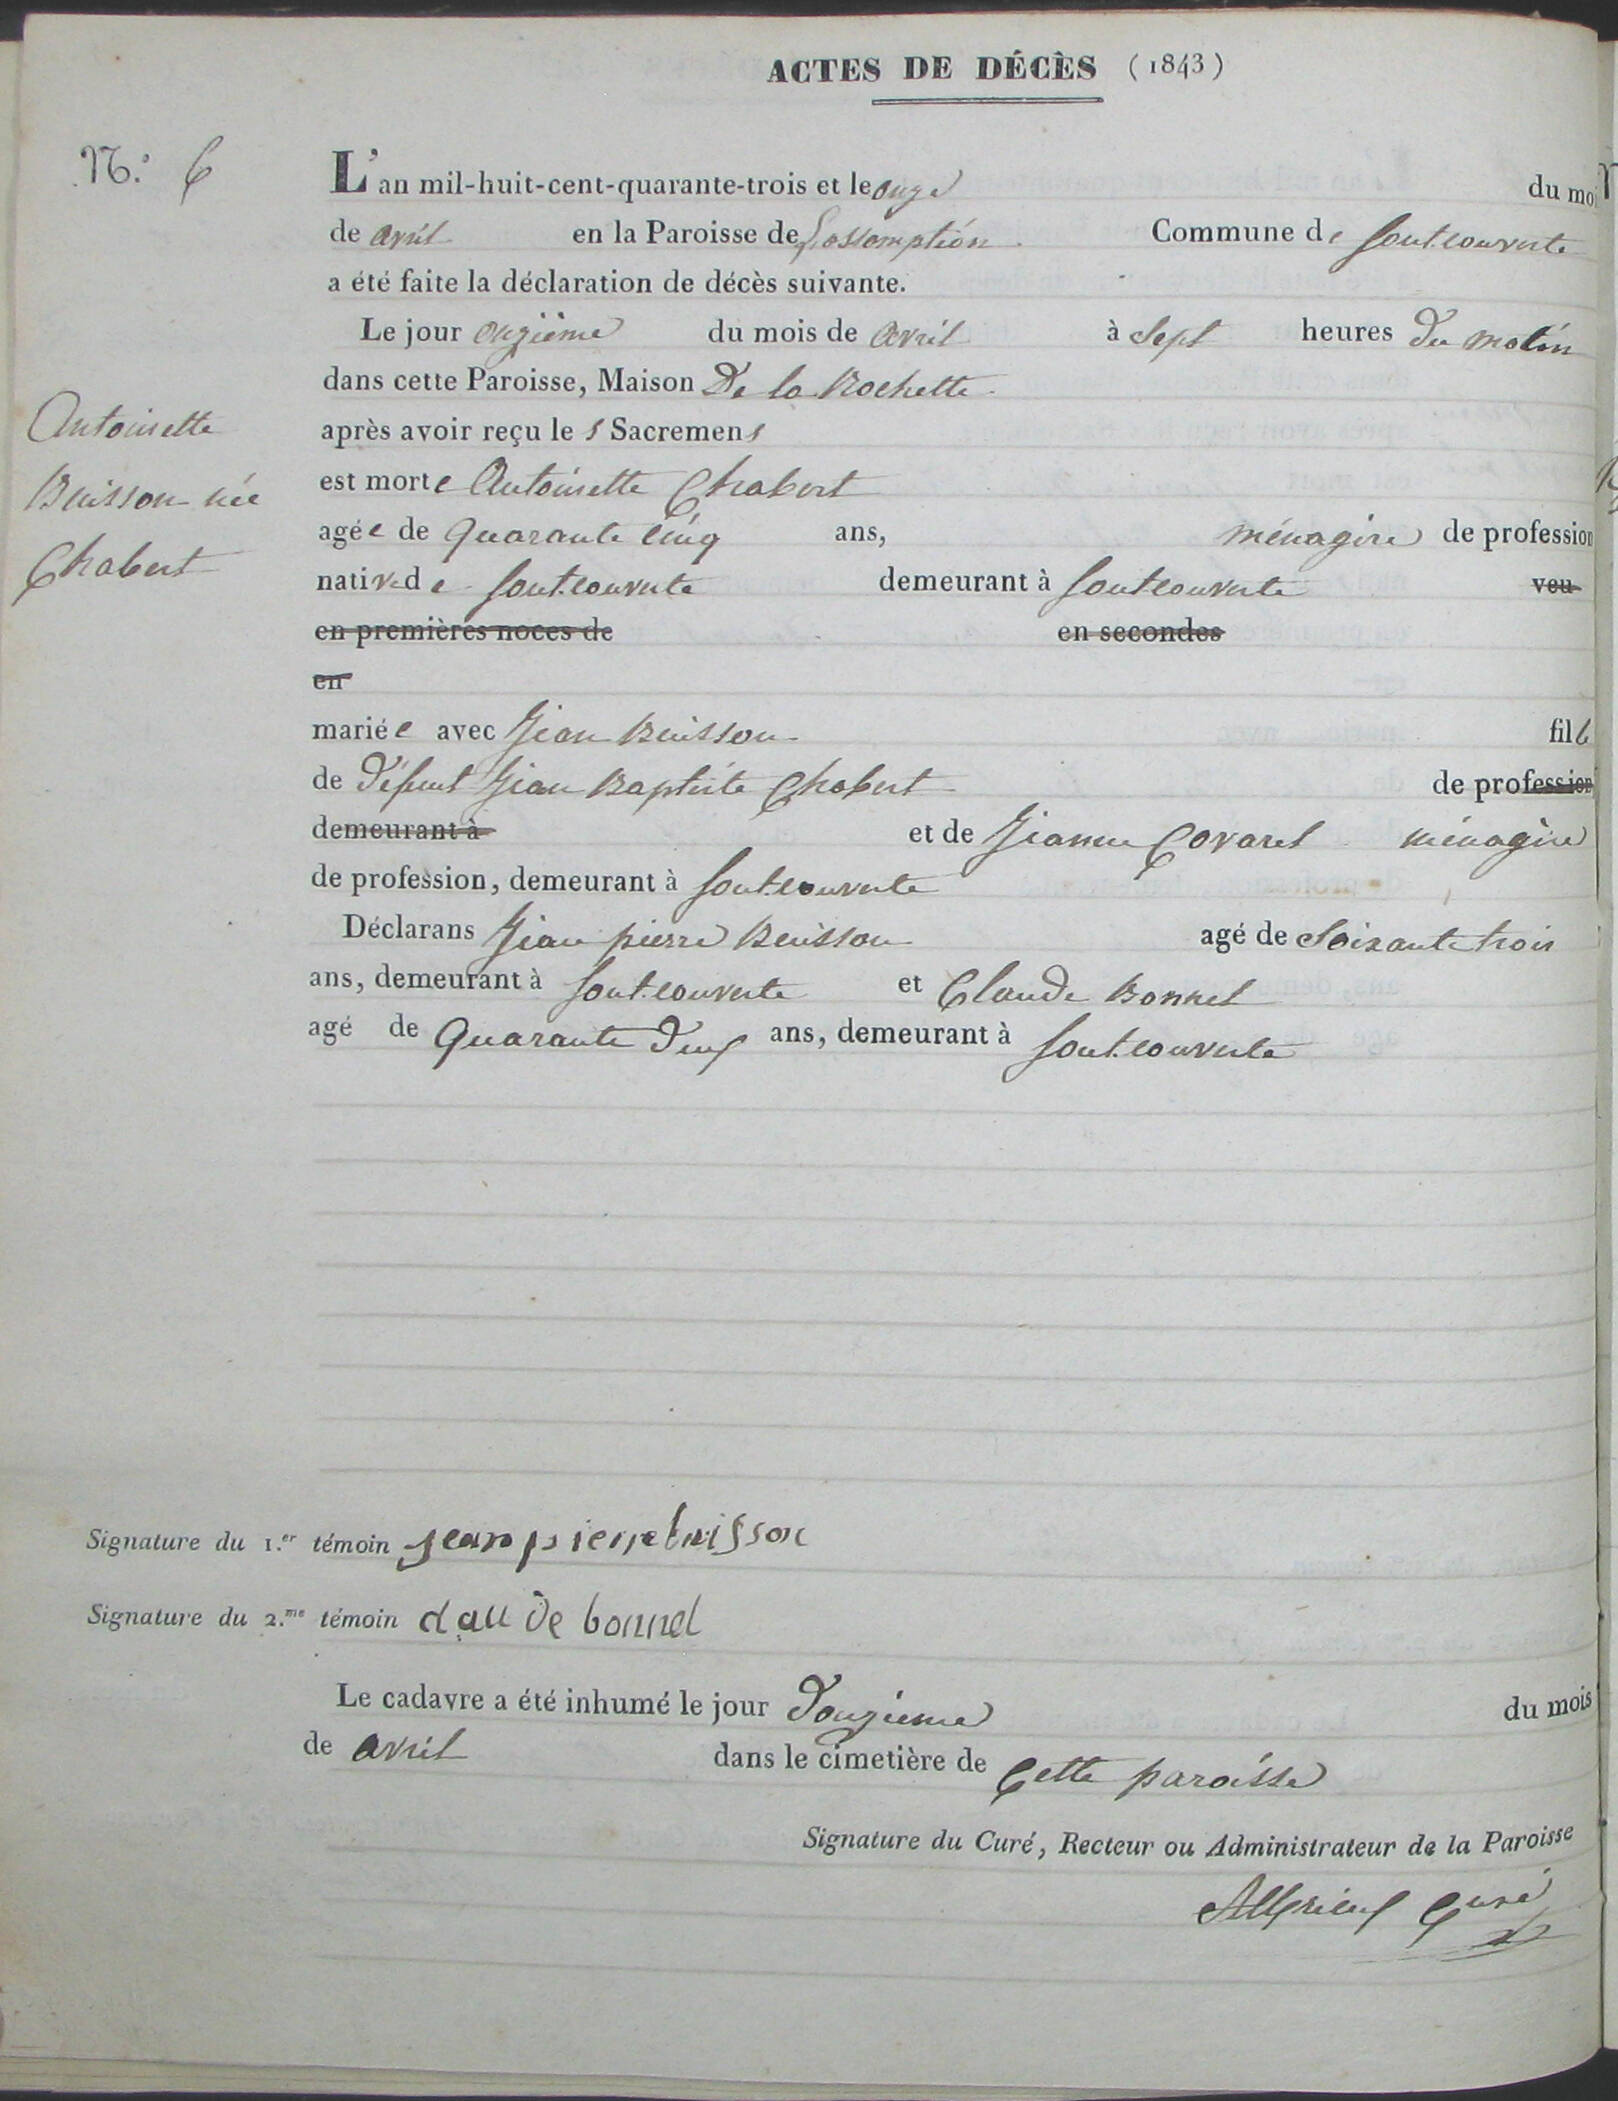 ACTES DE DÉCÈS (1843)
N.° 6
L'an mil-huit-cent-quarante-trois et le onze du moi
de avril en la Paroisse de L'assomption Commune de Fontcouverte
a été faite la déclaration de décès suivante.
Le jour onzième du mois de avril à Sept heures du matin
dans cette Paroisse, Maison De la Rochette
après avoir reçu les Sacremens
est morte Antoinette Chabert
Antoinette
Buisson née
Chabert
agée de Quarante cinq ans, ménagère de profession
native de Fontcouverte demeurant à Fontcouverte veu
en premières noces de en secondes
en
mariée avec Jean Buisson fille
de défunt Jean Baptiste Chabert de profession
demeurant à et de Jeanne Covarel ménagère
de profession, demeurant à Fontcouverte
Déclarans Jean pierre Buisson agé de Soixante trois
ans, demeurant à Fontcouverte et Claude Bonnel
agé de Quarante deux ans, demeurant à Fontcouverte
Signature du 1.er témoin jean pierre buisson
Signature du 2.me témoin claude bonnel
Le cadavre a été inhumé le jour douzième du mois
de avril dans le cimetière de Cette paroisse
Signature du Curé, Recteur ou Administrateur de la Paroisse
Curé